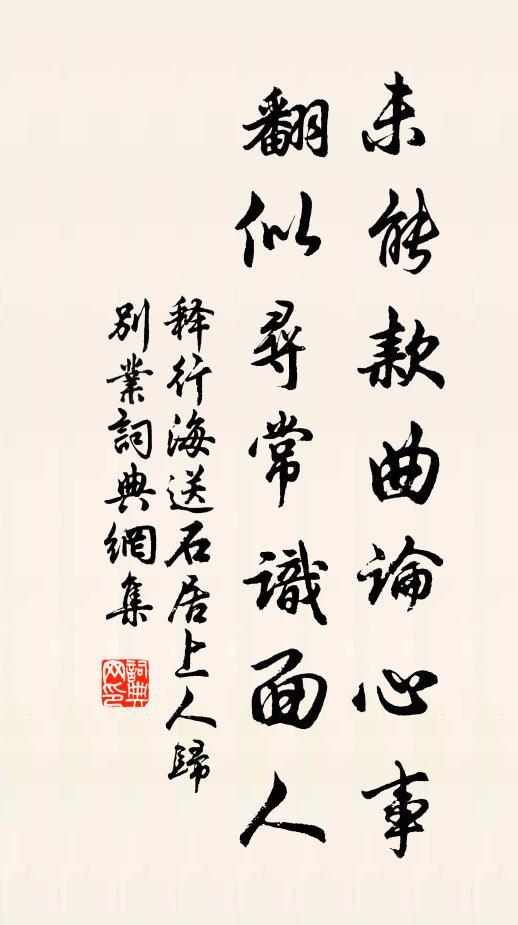 未能款曲論心事
翻似尋常識面人
释行海送石居上人歸
別業詞典網集
詞典网印